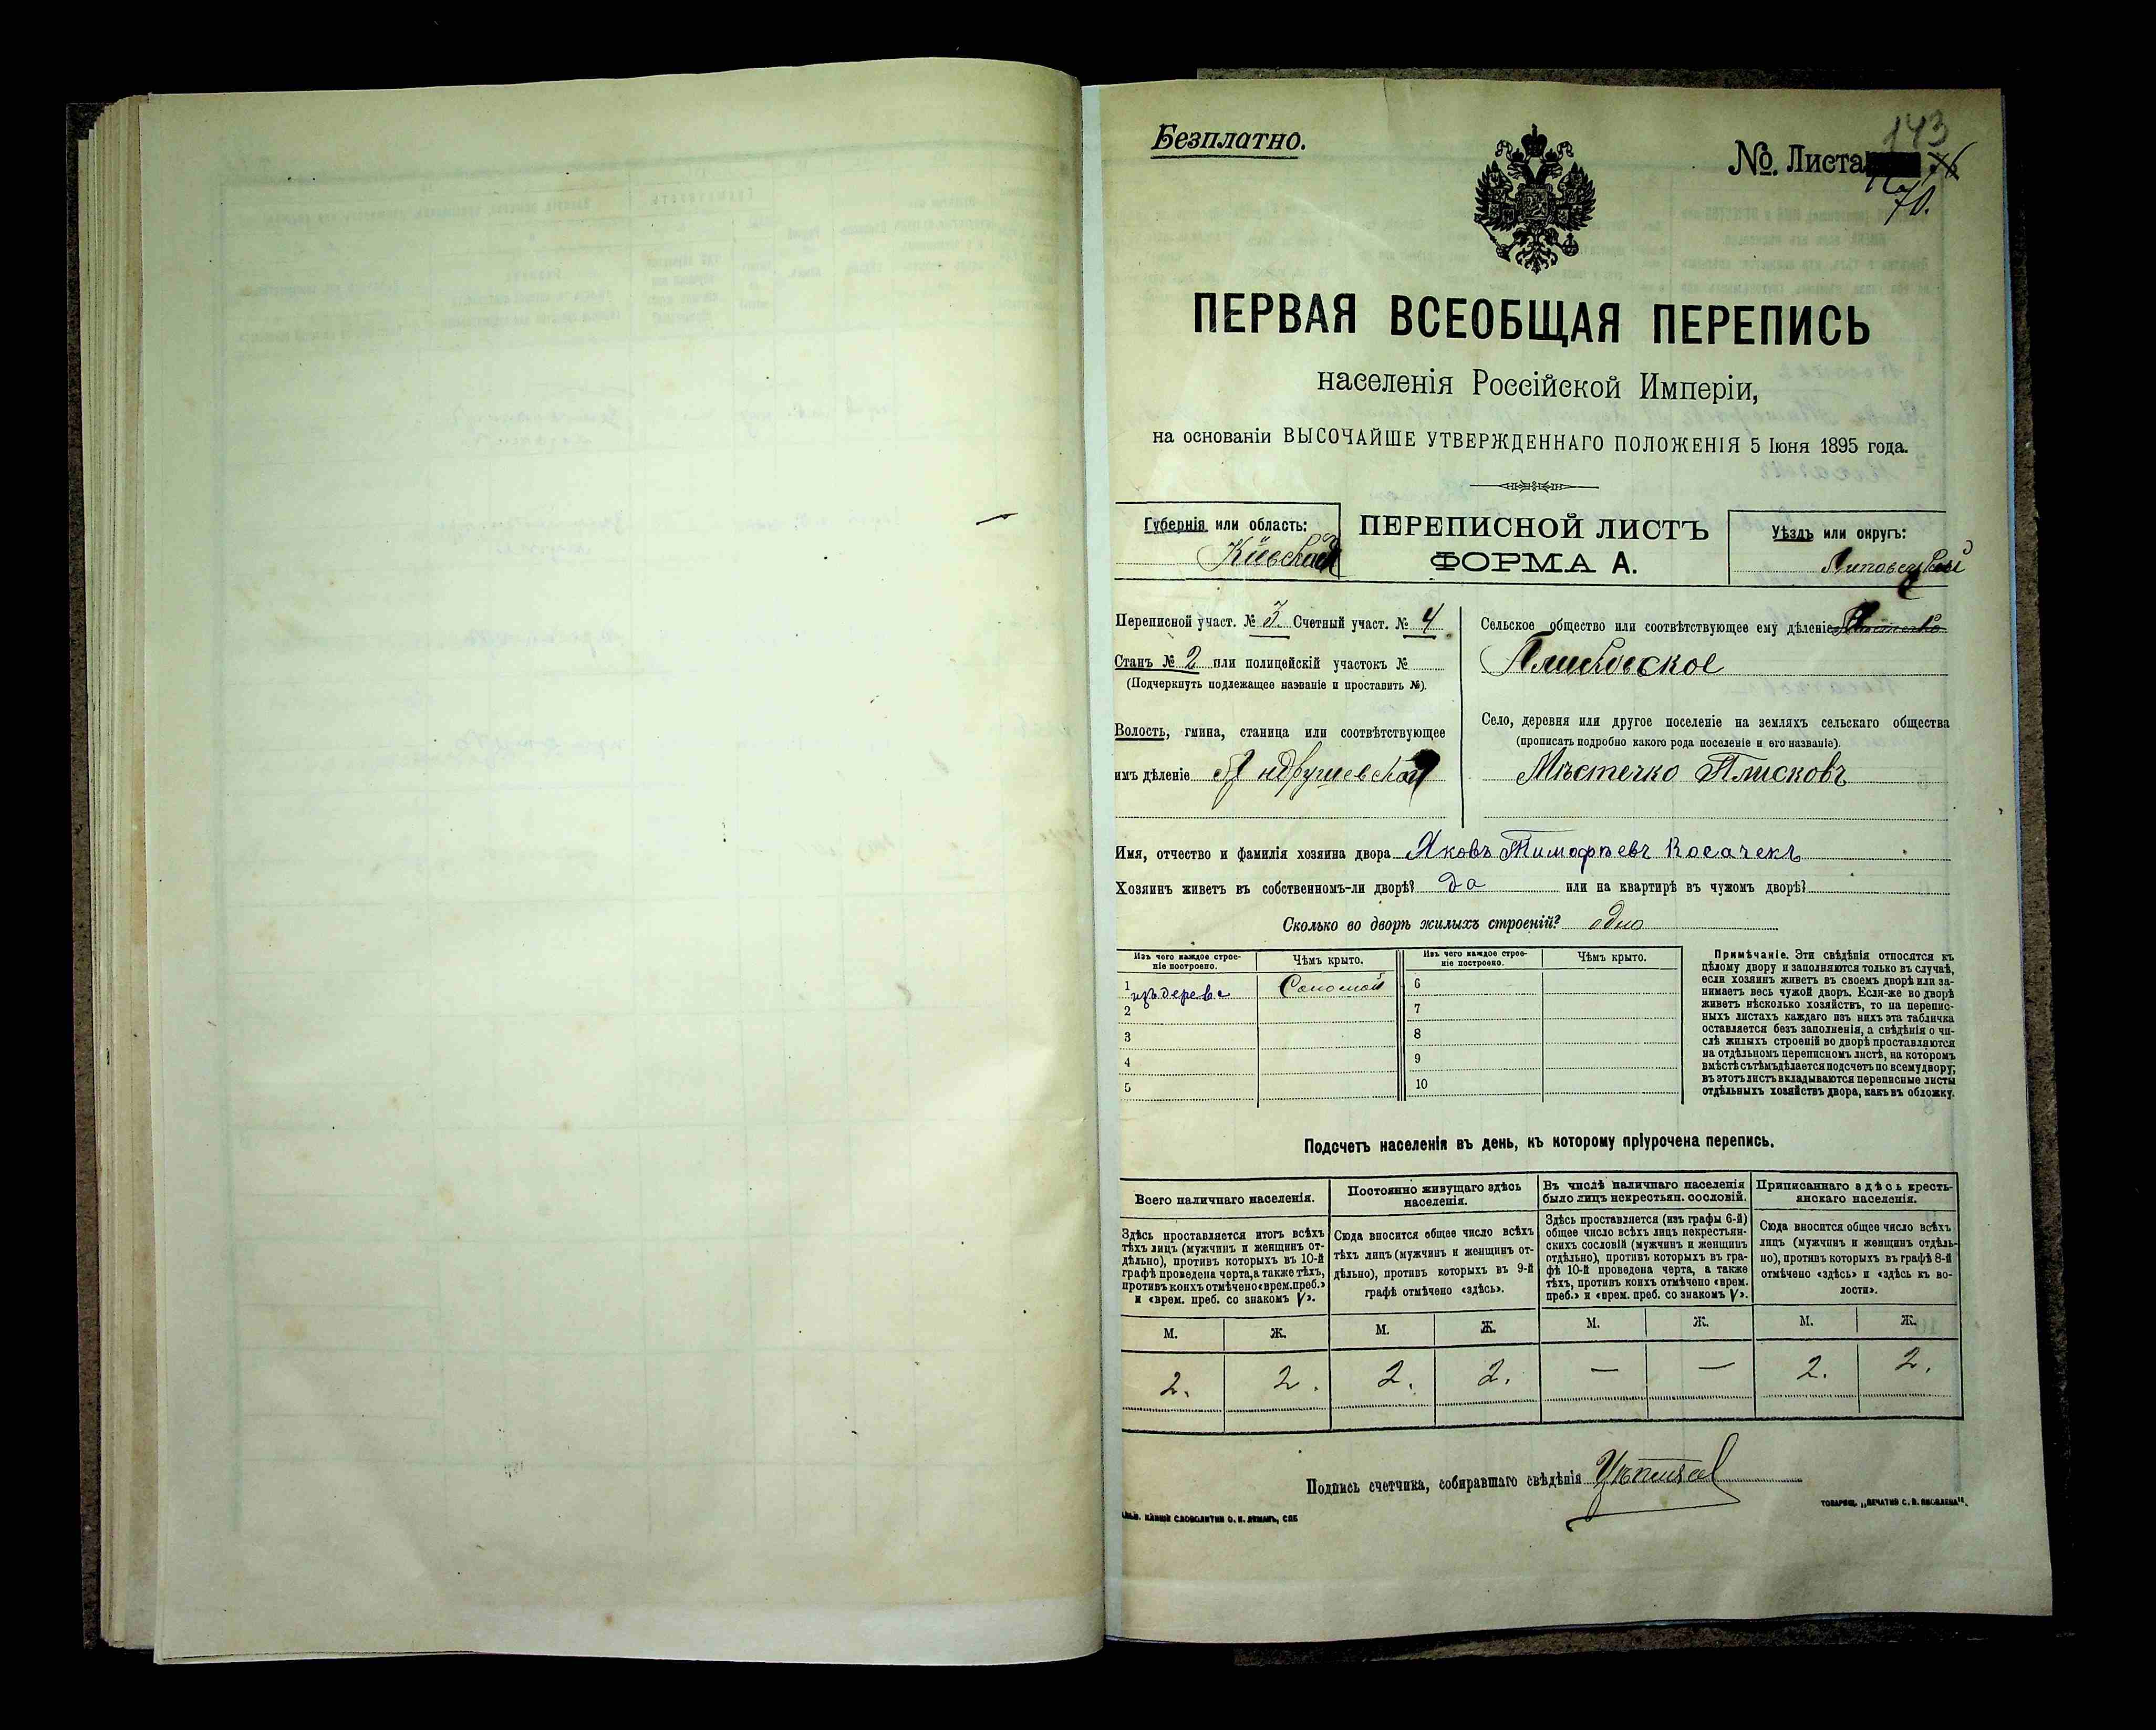 Безплатно.
143
№. Листа
70.
ПЕРВАЯ ВСЕОБЩАЯ ПЕРЕПИСЬ
населенія Россійской Имперіи,
на основаніи ВЫСОЧАЙШЕ УТВЕРЖДЕННАГО ПОЛОЖЕНІЯ 5 Іюня 1895 года.
Губернія или область:
Кіевская
ПЕРЕПИСНОЙ ЛИСТЪ
ФОРМА А.
Уѣздъ или округъ:
Липовецкій
Переписной участ. № 3. Счетный участ. № 4
Станъ № 2 или полицейскій участокъ №
(Подчеркнуть подлежащее названіе и проставить №).
Волость, гмина, станица или соотвѣтствующее
имъ дѣленіе Андрушевская
Сельское общество или соотвѣтствующее ему дѣленіе
Плисковское
Село, деревня или другое поселеніе на земляхъ сельскаго общества
(прописать подробно какого рода поселеніе и его названіе).
Мѣстечко Плисковъ
Имя, отчество и фамилія хозяина двора Яковъ Тимофѣевъ Косачекъ
Хозяинъ живетъ въ собственномъ-ли дворѣ? да или на квартирѣ въ чужомъ дворѣ?
Сколько во дворѣ жилыхъ строеній? одно
Изъ чего каждое строе-
ніе построено.
Чѣмъ крыто.
Изъ чего каждое строе-
ніе построено.
Чѣмъ крыто.
1 изъ дерева Соломой 6
2 7
3 8
4 9
5 10
Примѣчаніе. Эти свѣдѣнія относятся къ
цѣлому двору и заполняются только въ случаѣ,
если хозяинъ живетъ въ своемъ дворѣ или за-
нимаетъ весь чужой дворъ. Если-же во дворѣ
живетъ нѣсколько хозяйствъ, то на перепис-
ныхъ листахъ каждаго изъ нихъ эта табличка
оставляется безъ заполненія, а свѣдѣнія о чи-
слѣ жилыхъ строеній во дворѣ проставляются
на отдѣльномъ переписномъ листѣ, на которомъ
вмѣстѣ съ тѣмъ дѣлается подсчетъ по всему двору;
въ этотъ листъ вкладываются переписные листы
отдѣльныхъ хозяйствъ двора, какъ въ обложку.
Подсчетъ населенія въ день, къ которому пріурочена перепись.
Всего наличнаго населенія.
Здѣсь проставляется итогъ всѣхъ
тѣхъ лицъ (мужчинъ и женщинъ от-
дѣльно), противъ которыхъ въ 10-й
графѣ проведена черта, а также тѣхъ,
противъ коихъ отмѣчено «врем. преб.»
и «врем. преб. со знакомъ V».
Постоянно живущаго здѣсь
населенія.
Сюда вносится общее число всѣхъ
тѣхъ лицъ (мужчинъ и женщинъ от-
дѣльно), противъ которыхъ въ 9-й
графѣ отмѣчено «здѣсь».
Въ числѣ наличнаго населенія
было лицъ некрестьян. сословій.
Здѣсь проставляется (изъ графы 6-й)
общее число всѣхъ лицъ некрестьян-
скихъ сословій (мужчинъ и женщинъ
отдѣльно), противъ которыхъ въ гра-
фѣ 10-й проведена черта, а также
тѣхъ, противъ коихъ отмѣчено «врем.
преб.» и «врем. преб. со знакомъ V».
Приписаннаго здѣсь кресть-
янскаго населенія.
Сюда вносится общее число всѣхъ
лицъ (мужчинъ и женщинъ отдѣль-
но), противъ которыхъ въ графѣ 8-й
отмѣчено «здѣсь» и «здѣсь къ во-
лости».
М. Ж. М. Ж. М. Ж. М. Ж.
2. 2. 2. 2. — — 2. 2.
Подпись счетчика, собиравшаго свѣдѣнія
ТОВАРИЩ. „ПЕЧАТНЯ С. П. ЯКОВЛЕВА".